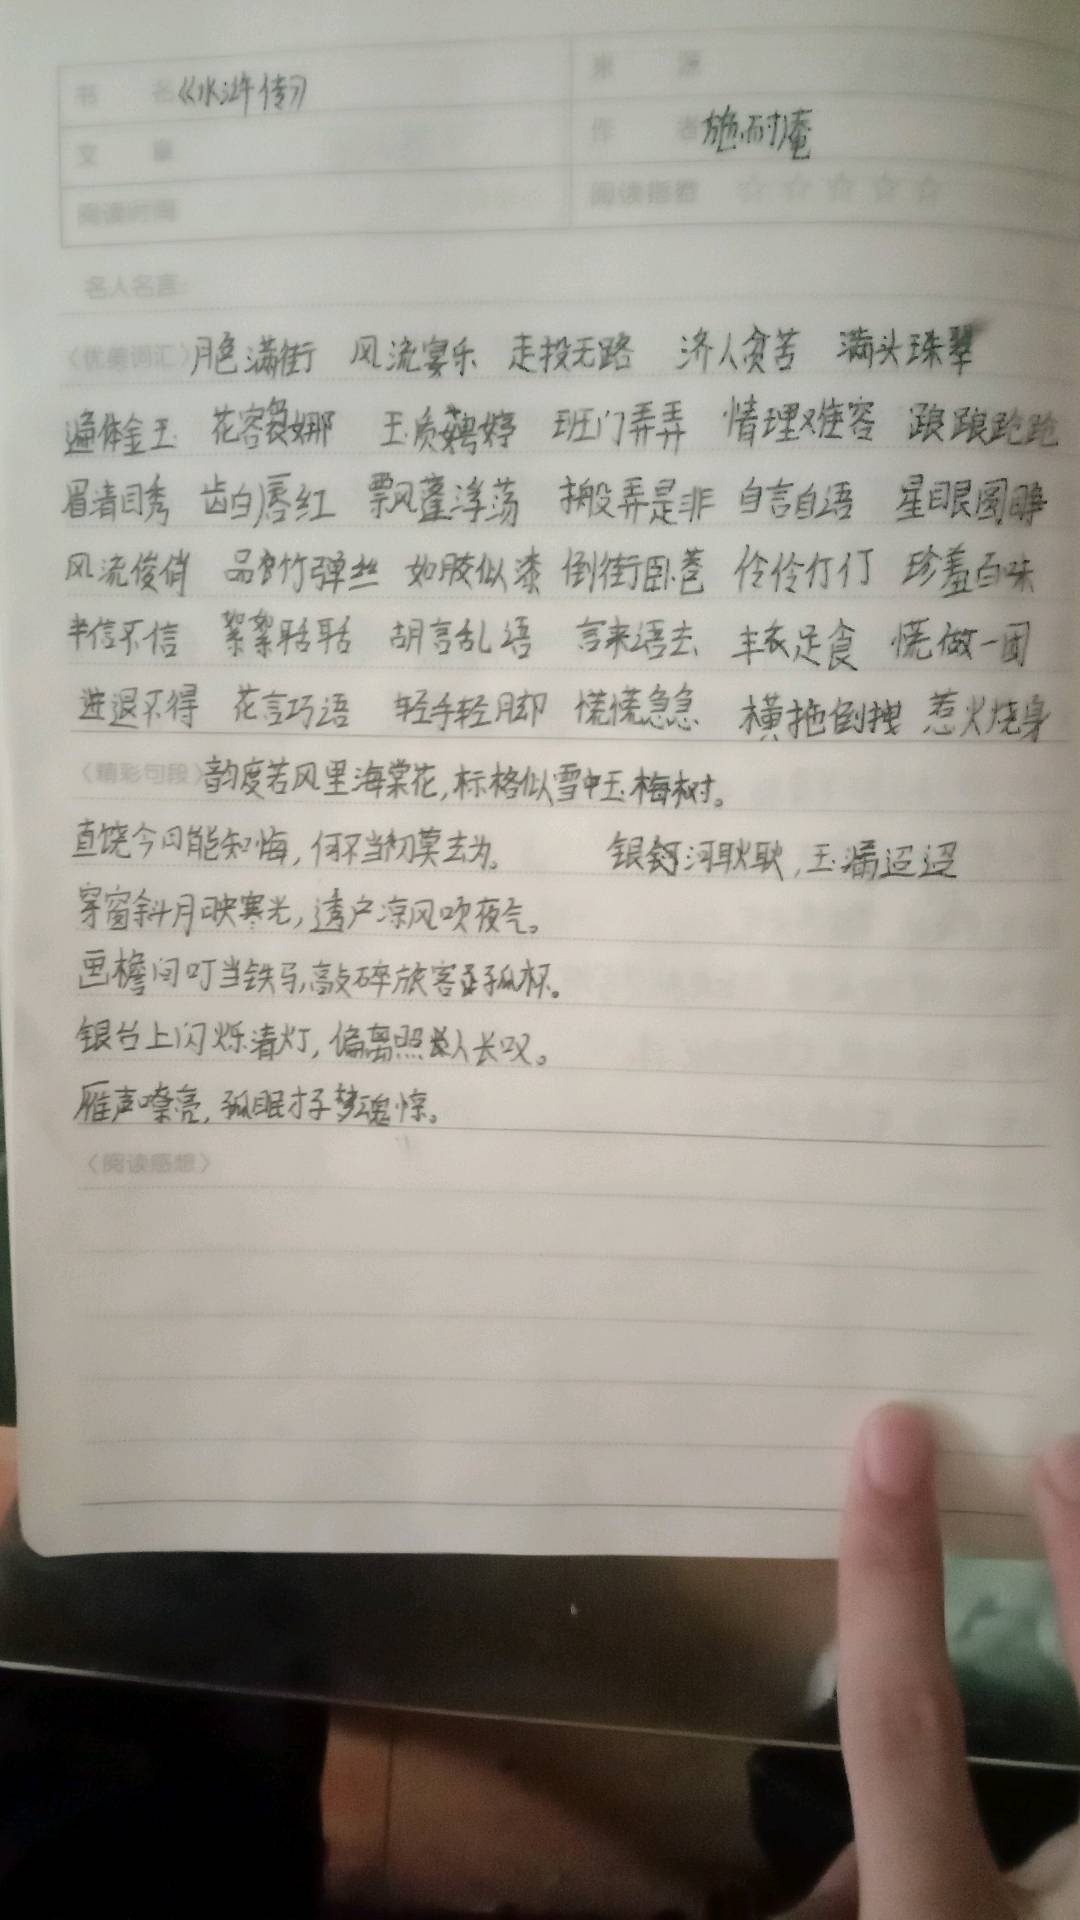 书 名《水浒传》 来 源
文 章 作 者 施耐庵
阅读时间 阅读指数 ☆☆☆☆☆
名人名言:
〈优美词汇〉月色满街 风流宴乐 走投无路 济人贫苦 满头珠翠
遍体金玉 花容袅娜 玉质娉婷 班门弄弄 情理难容 踉踉跄跄
眉清目秀 齿白唇红 飘蓬浮荡 搬弄是非 自言自语 星眼圆睁
风流俊俏 品竹弹丝 如胶似漆 倒街卧巷 伶伶仃仃 珍羞百味
半信不信 絮絮聒聒 胡言乱语 言来语去 丰衣足食 慌做一团
进退不得 花言巧语 轻手轻脚 慌慌急急 横拖倒拽 惹火烧身
〈精彩句段〉韵度若风里海棠花,标格似雪中玉梅树。
直饶今日能知悔,何不当初莫去为。 银河耿耿,玉漏迢迢
穿窗斜月映寒光,透户凉风吹夜气。
画檐间叮当铁马,敲碎旅客孤怀。
银台上闪烁清灯,偏离照人长叹。
雁声嘹亮,孤眠才子梦魂惊。
〈阅读感想〉